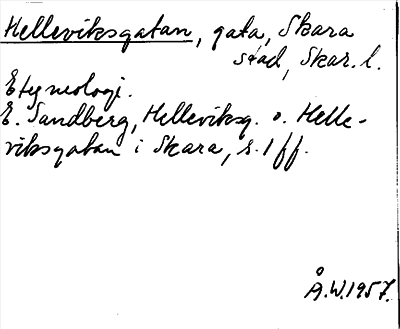 Helleviksgatan, gata, Skara
stad, Skar. l.
Etymologi.
E. Sandberg, Helleviksg. o. Helle-
viksgatan i Skara, s. 1 ff.
Å.W.1957.